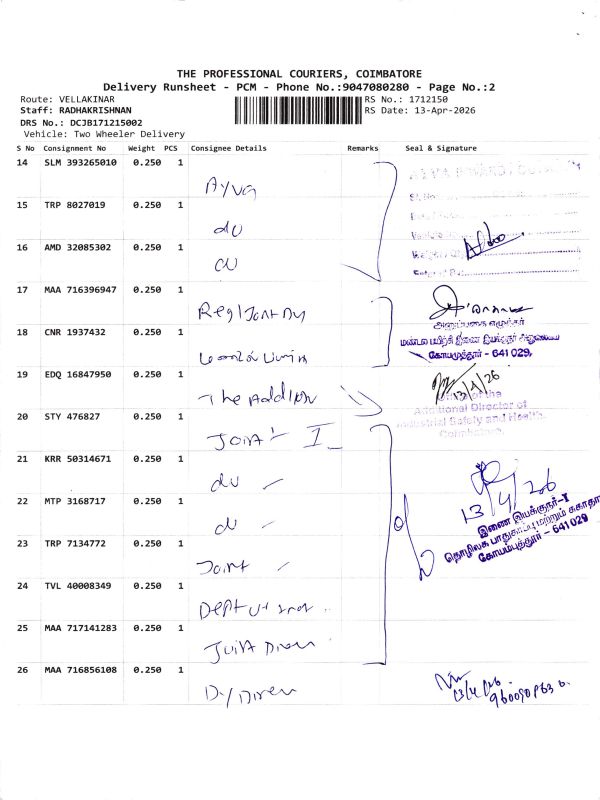 THE PROFESSIONAL COURIERS, COIMBATORE
Delivery Runsheet - PCM - Phone No.:9047080280 - Page No.:2
Route: VELLAKINAR
RS No.: 1712150
Staff: RADHAKRISHNAN
RS Date: 13-Apr-2026
DRS No.: DCJB171215002
Vehicle: Two Wheeler Delivery
S No Consignment No Weight PCS Consignee Details Remarks Seal & Signature
14 SLM 393265010 0.250 1
15 TRP 8027019 0.250 1
du
16 AMD 32085302 0.250 1
17 MAA 716396947 0.250 1
18 CNR 1937432 0.250 1
மண்டல பயிற்சி இணை இயக்குநர் அலுவலகம்
கோயமுத்தூர் - 641 029.
19 EDQ 16847950 0.250 1
The Addl
13/4/26
Office of the
Additional Director of
Industrial Safety and Health,
Coimbatore.
20 STY 476827 0.250 1
Joint - I
21 KRR 50314671 0.250 1
du
13/4/26
22 MTP 3168717 0.250 1
du
இணை இயக்குநர்-I
தொழிலக பாதுகாப்பு மற்றும் சுகாதார
கோயம்புத்தூர் - 641 029
23 TRP 7134772 0.250 1
Joint
24 TVL 40008349 0.250 1
25 MAA 717141283 0.250 1
26 MAA 716856108 0.250 1
13/4/26